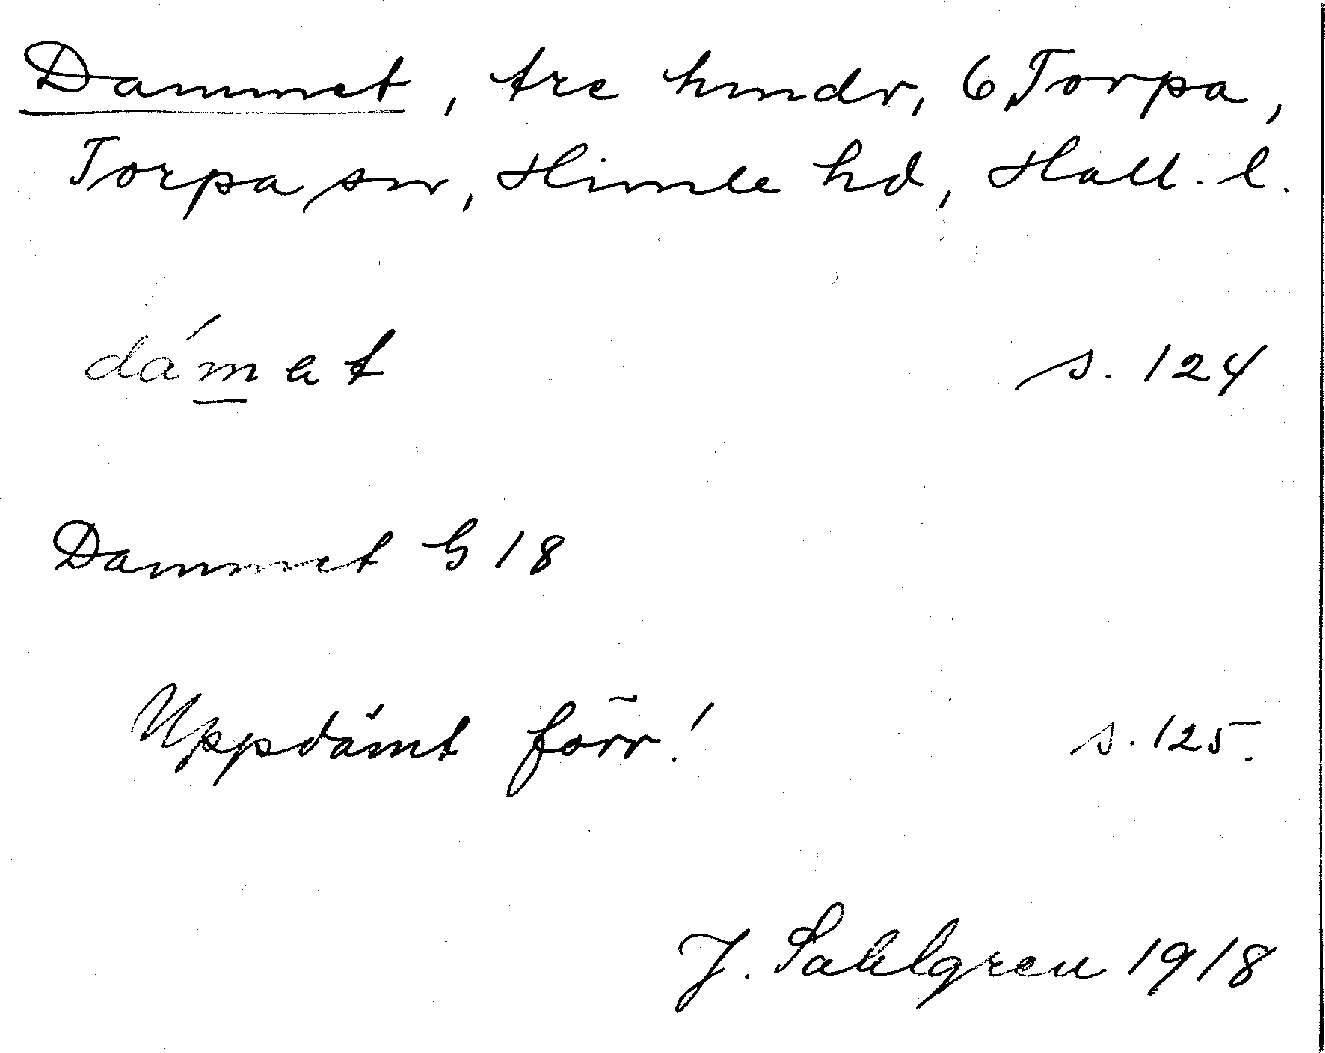 Dammet, tre hmdr, 6 Torpa,
Torpa sn, Himle hd, Hall. l.
dámat s. 124
Dammet G 18
Uppdämt förr! s. 125.
J. Sahlgren 1918